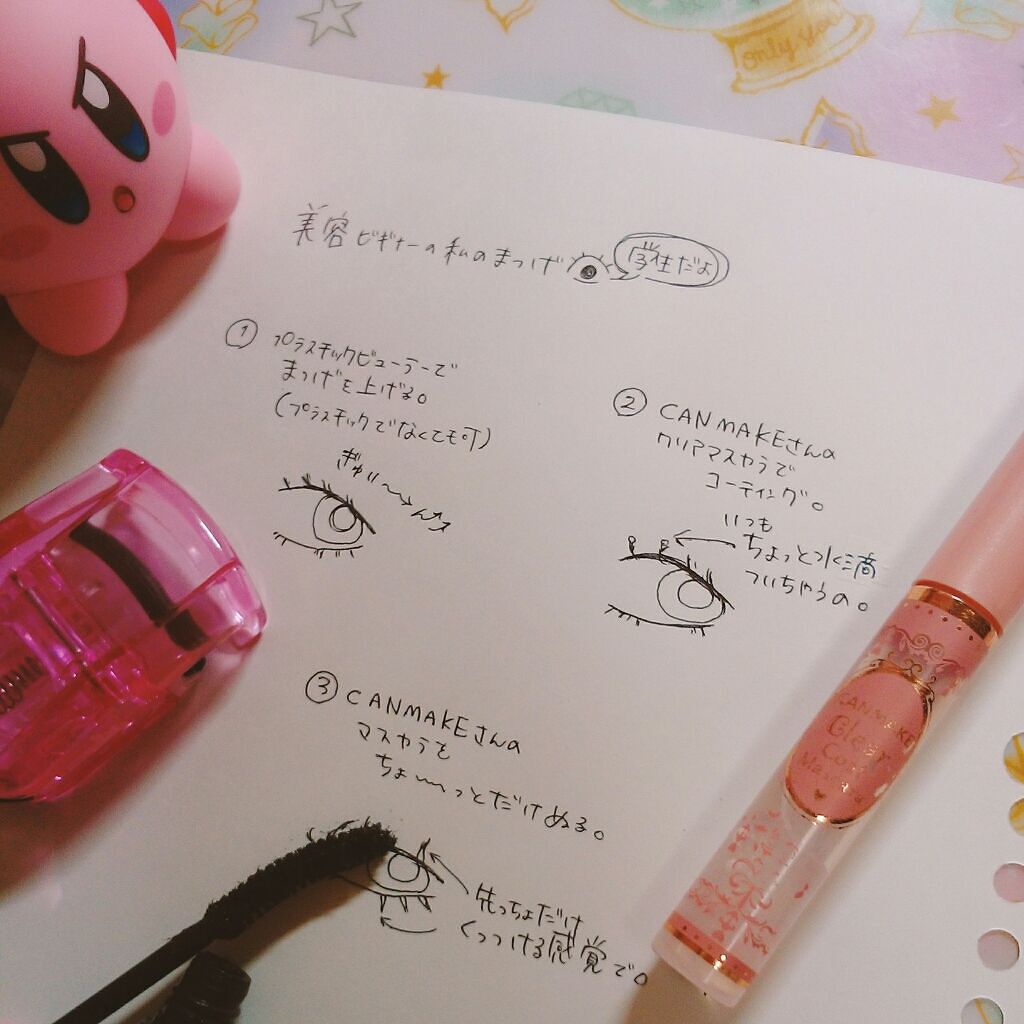 only you
美容ビギナーの私のまつげ
学生だよ
① プラスチックビューラーで
まつげを上げる。
(プラスチックでなくても可)
ぎゅり〜〜
② CANMAKEさんの
クリアマスカラで
コーティング。
いつも
ちょっと水滴
ついちゃうの。
③ CANMAKEさんの
マスカラを
ちょ〜〜っとだけぬる。
先っちょだけ
くっつける感覚で。
CANMAKE
Clear
Coat